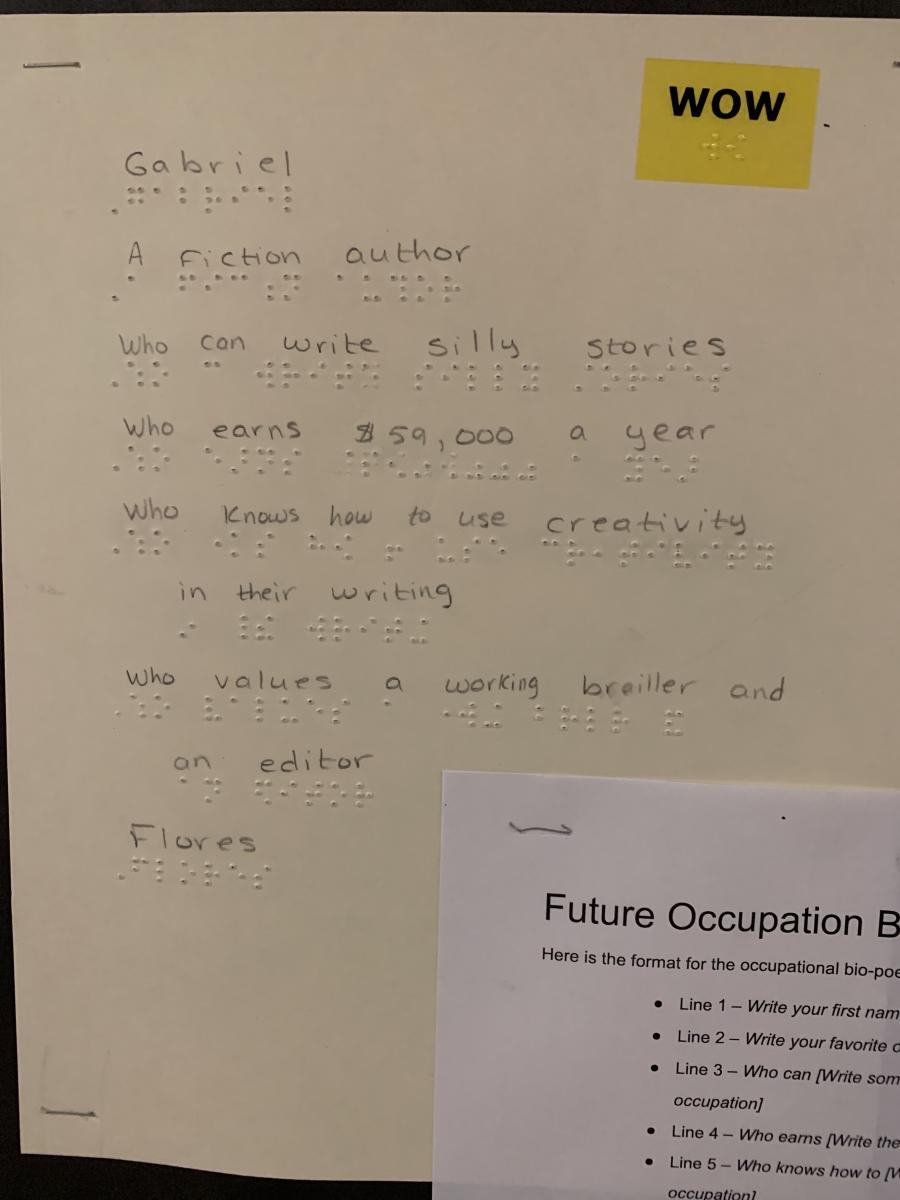 WOW
Gabriel
A Fiction author
Who can write silly stories
Who earns $59,000 a year
Who knows how to use creativity
in their writing
Who values a working brailler and
an editor
Flores
Future Occupation B
Here is the format for the occupational bio-poe
• Line 1 – Write your first nam
• Line 2 – Write your favorite o
• Line 3 – Who can [Write som
occupation]
• Line 4 – Who earns [Write the
• Line 5 – Who knows how to [W
occupation]